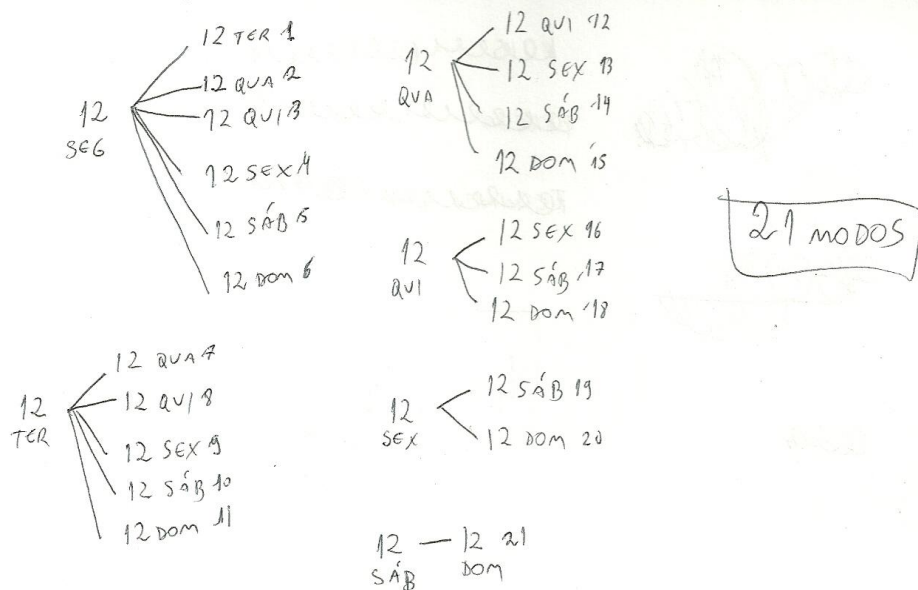 12 SEG
12 TER 1
12 QUA 2
12 QUI 3
12 SEX 4
12 SÁB 5
12 DOM 6
12 TER
12 QUA 7
12 QUI 8
12 SEX 9
12 SÁB 10
12 DOM 11
12 QUA
12 QUI 12
12 SEX 13
12 SÁB 14
12 DOM 15
12 QUI
12 SEX 16
12 SÁB 17
12 DOM 18
12 SEX
12 SÁB 19
12 DOM 20
12 SÁB
12 21 DOM
21 MODOS